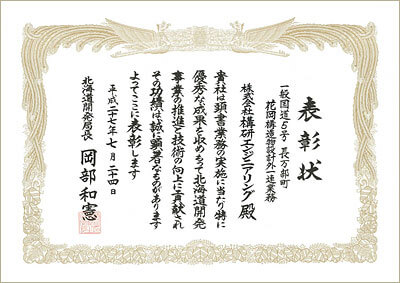 表彰状
一般国道5号 長万部町
花岡構造物設計外一連業務
株式会社構研エンジニアリング殿
貴社は頭書業務の実施に当たり特に
優秀な成果を収めもって北海道開発
事業の推進と技術の向上に貢献され
その功績は誠に顕著なものがあります
よってここに表彰します
平成二十七年七月二十四日
北海道開発局長 岡部和憲